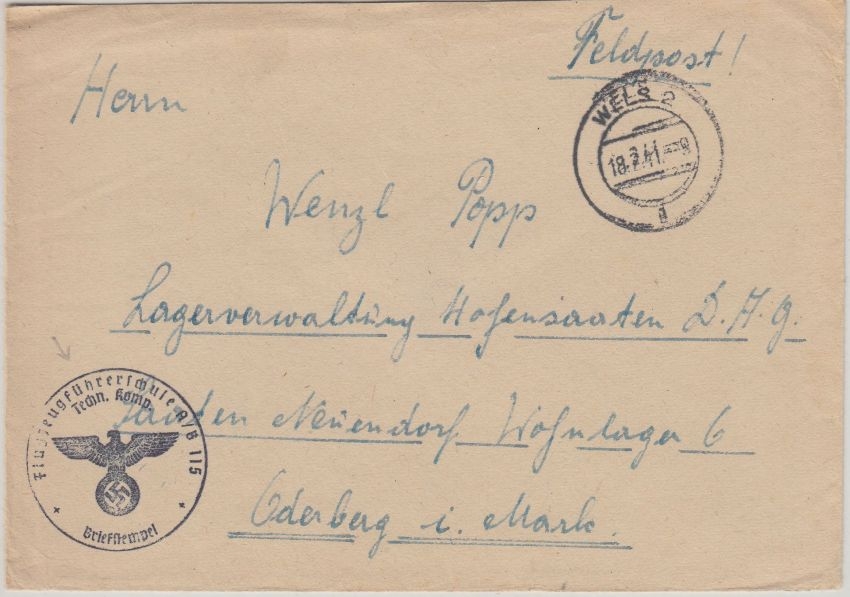 Feldpost!
WELS 2
18.2.41.-8
Herrn
Wenzl Popp
Lagerverwaltung Hohensaaten D. A. G.
Neuendorf Wohnlager 6
Oderberg i. Mark.
Flugzeugführerschule A/B 115
Techn. Komp.
Briefstempel